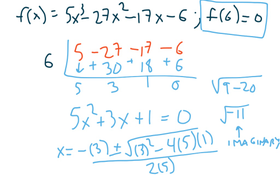 f(x) = 5x³ - 27x² - 17x - 6 ; f(6) = 0
6 | 5 - 27 - 17 - 6
↓ + 30 + 18 + 6
5 3 1 0
√9 - 20
5x² + 3x + 1 = 0
√-11
↑
IMAGINARY
x = -(3) ± √(3)² - 4(5)(1)
2(5)